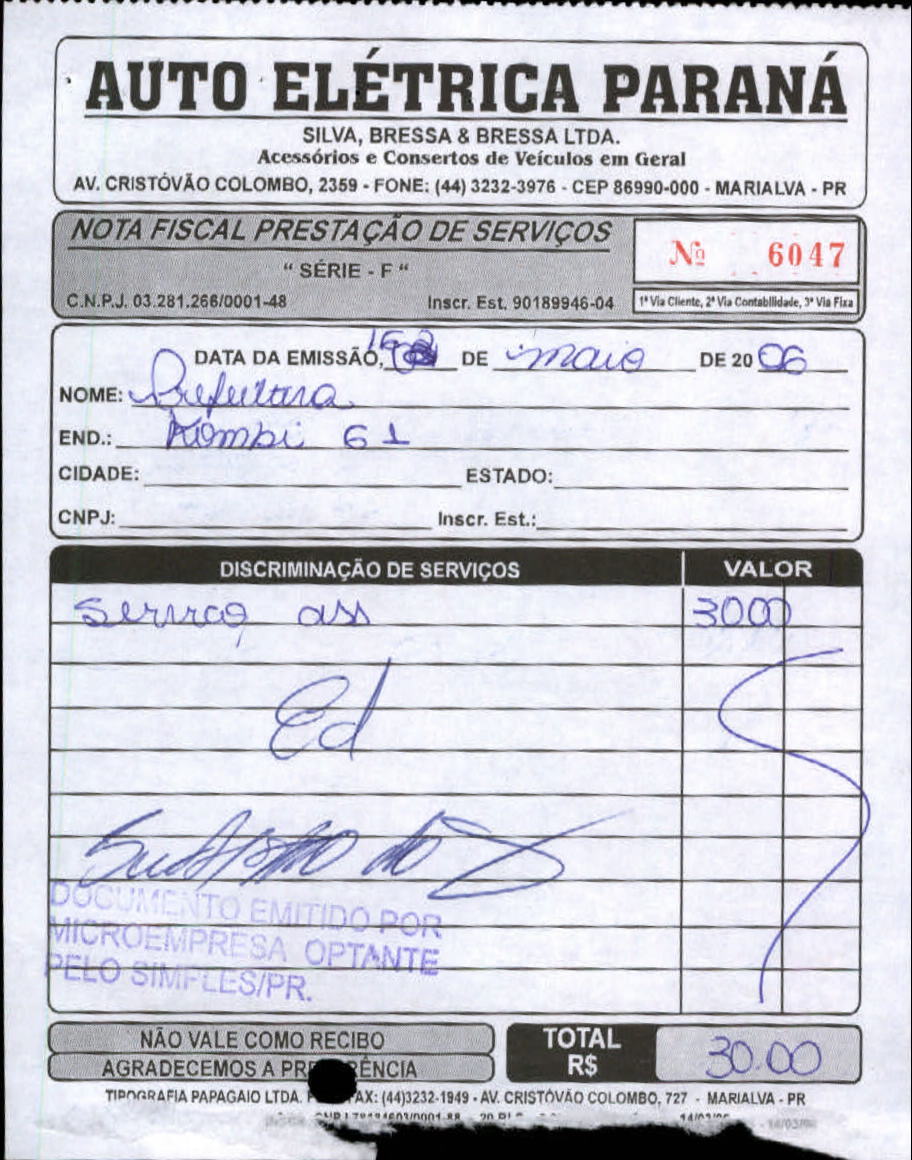 AUTO ELÉTRICA PARANÁ
SILVA, BRESSA & BRESSA LTDA.
Acessórios e Consertos de Veículos em Geral
AV. CRISTÓVÃO COLOMBO, 2359 - FONE: (44) 3232-3976 - CEP 86990-000 - MARIALVA - PR
NOTA FISCAL PRESTAÇÃO DE SERVIÇOS
Nº 6047
" SÉRIE - F "
C.N.P.J. 03.281.266/0001-48 Inscr. Est. 90189946-04
1ª Via Cliente, 2ª Via Contabilidade, 3ª Via Fixa
DATA DA EMISSÃO, DE maio DE 2006
NOME: Prefeitura
END.: Kombi 61
CIDADE: ESTADO:
CNPJ: Inscr. Est.:
DISCRIMINAÇÃO DE SERVIÇOS VALOR
Serviço 3000
Ed
DOCUMENTO EMITIDO POR
MICROEMPRESA OPTANTE
PELO SIMPLES/PR.
NÃO VALE COMO RECIBO
AGRADECEMOS A
TOTAL
R$ 30.00
TIPOGRAFIA PAPAGAIO LTDA. (44)3232-1949 - AV. CRISTÓVÃO COLOMBO, 727 - MARIALVA - PR